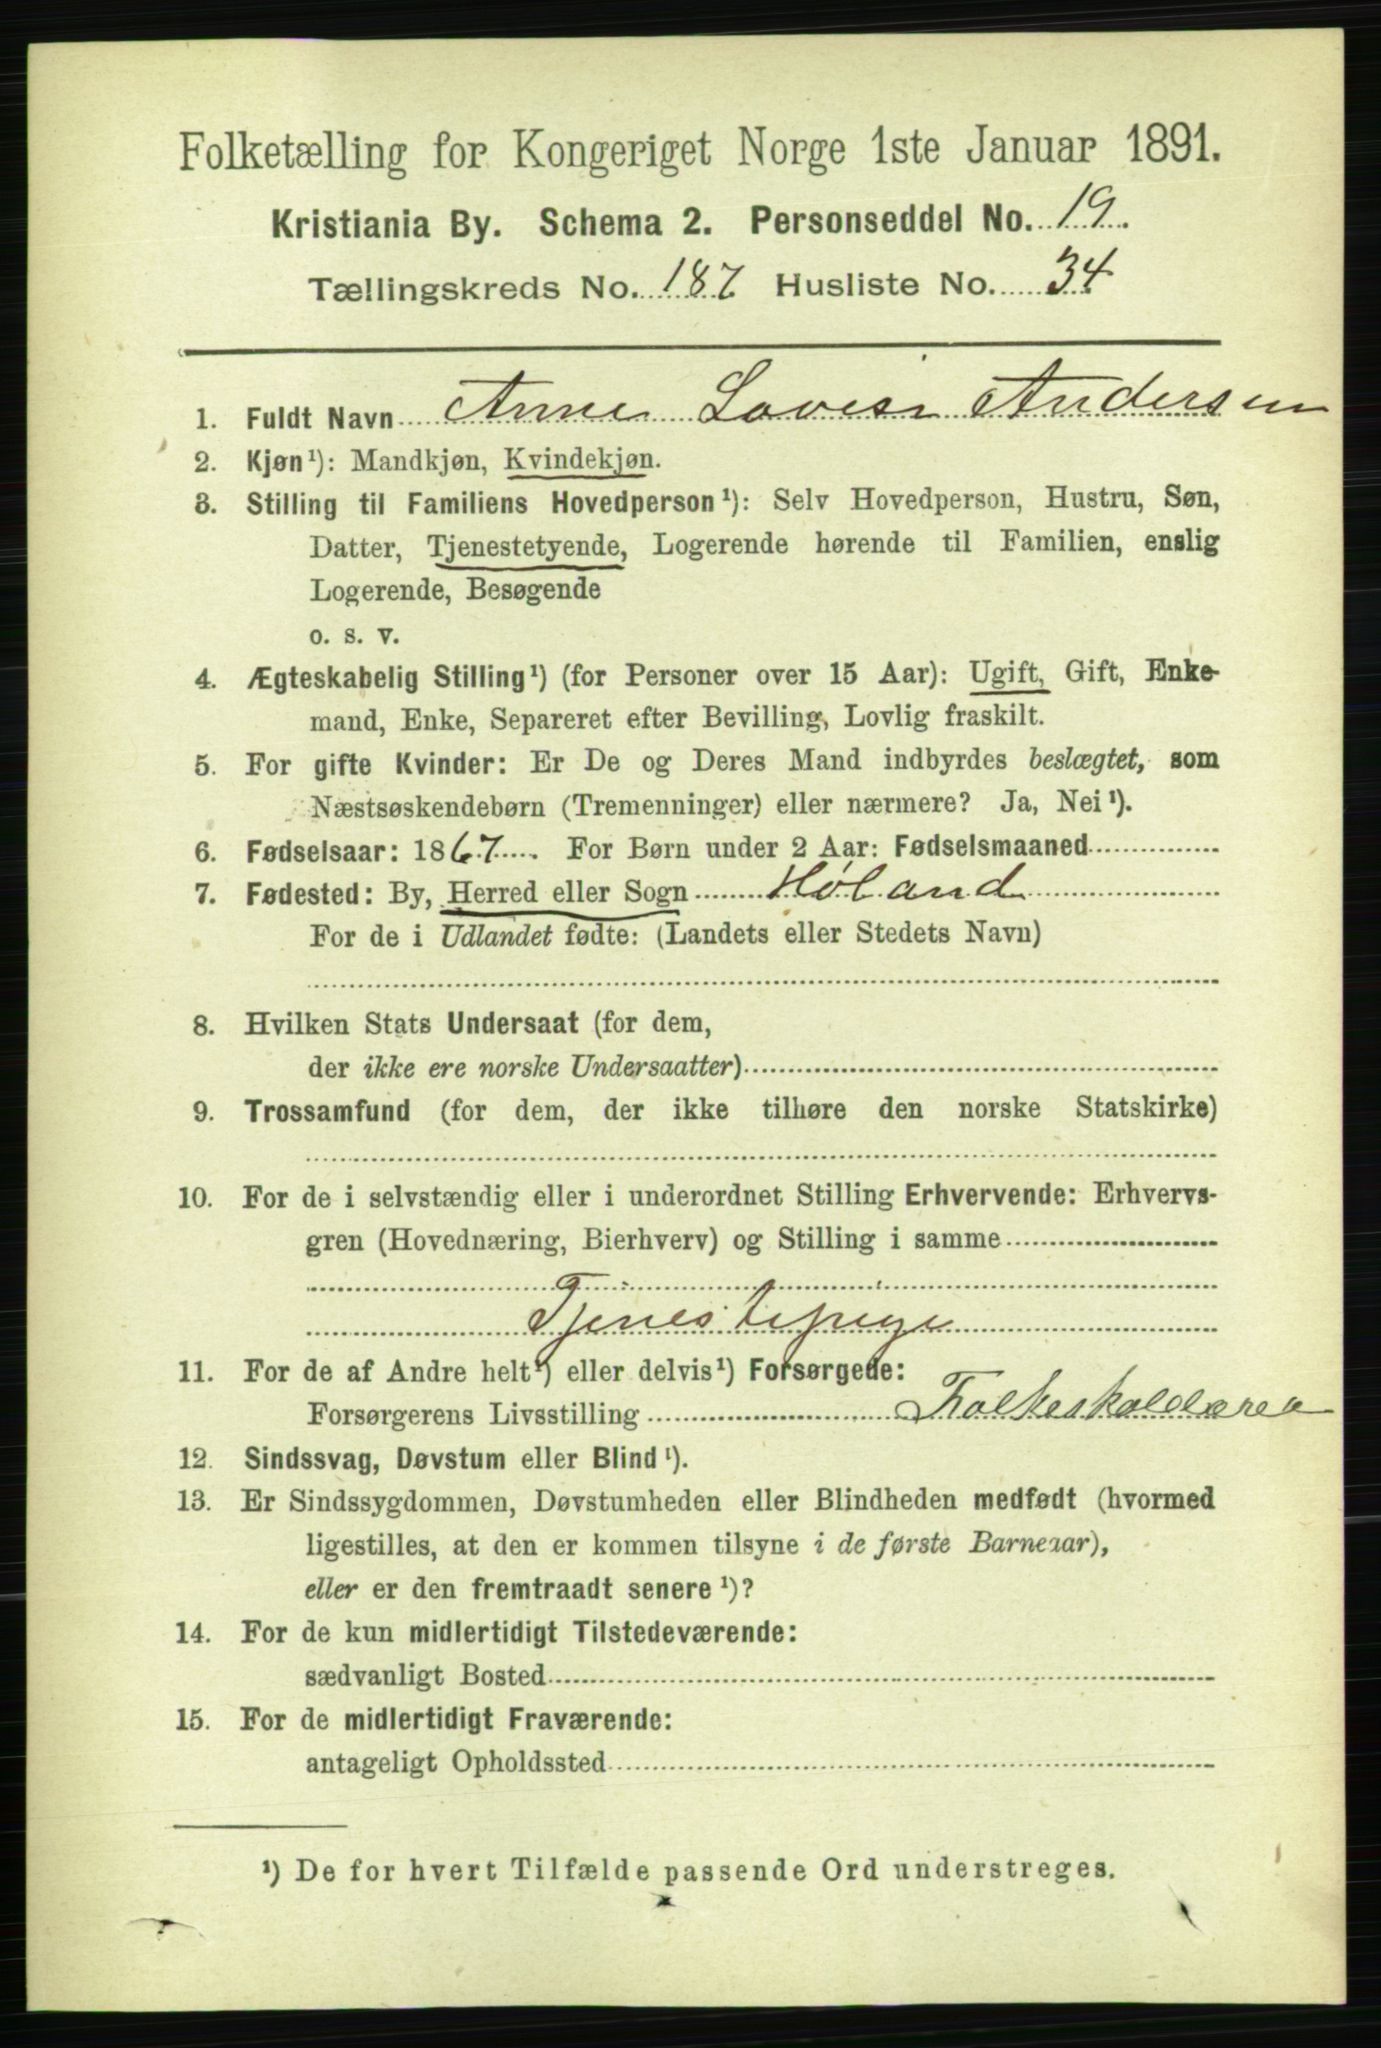 Folketælling for Kongeriget Norge 1ste Januar 1891.
Kristiania By. Schema 2. Personseddel No. 19.
Tællingskreds No. 187 Husliste No. 34
1. Fuldt Navn Anne Lovise Andersen
2. Kjøn¹): Mandkjøn, Kvindekjøn.
3. Stilling til Familiens Hovedperson¹): Selv Hovedperson, Hustru, Søn,
Datter, Tjenestetyende, Logerende hørende til Familien, enslig
Logerende, Besøgende
o. s. v.
4. Ægteskabelig Stilling¹) (for Personer over 15 Aar): Ugift, Gift, Enke-
mand, Enke, Separeret efter Bevilling, Lovlig fraskilt.
5. For gifte Kvinder: Er De og Deres Mand indbyrdes beslægtet, som
Næstsøskendebørn (Tremenninger) eller nærmere? Ja, Nei¹).
6. Fødselsaar: 1867. For Børn under 2 Aar: Fødselsmaaned
7. Fødested: By, Herred eller Sogn Høland
For de i Udlandet fødte: (Landets eller Stedets Navn)
8. Hvilken Stats Undersaat (for dem,
der ikke ere norske Undersaatter)
9. Trossamfund (for dem, der ikke tilhøre den norske Statskirke)
10. For de i selvstændig eller i underordnet Stilling Erhvervende: Erhvervs-
gren (Hovednæring, Bierhverv) og Stilling i samme
Tjenestepige
11. For de af Andre helt¹) eller delvis¹) Forsørgede:
Forsørgerens Livsstilling
12. Sindssvag, Døvstum eller Blind¹).
13. Er Sindssygdommen, Døvstumheden eller Blindheden medfødt (hvormed
ligestilles, at den er kommen tilsyne i de første Barneaar),
eller er den fremtraadt senere¹)?
14. For de kun midlertidigt Tilstedeværende:
sædvanligt Bosted
15. For de midlertidigt Fraværende:
antageligt Opholdssted
¹) De for hvert Tilfælde passende Ord understreges.